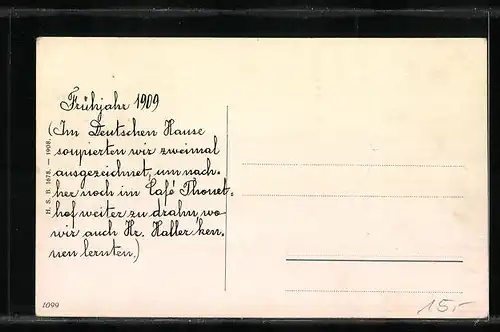 Frühjahr 1909
(Im Deutschen Hause
soupierten wir zweimal
ausgezeichnet, um nach-
her noch im Café Thonet-
hof weiter zu drahn, wo
wir auch Hr. Haller ken,
nen lernten.)
H. S. B. 1678. — 1908.
1099
15.-